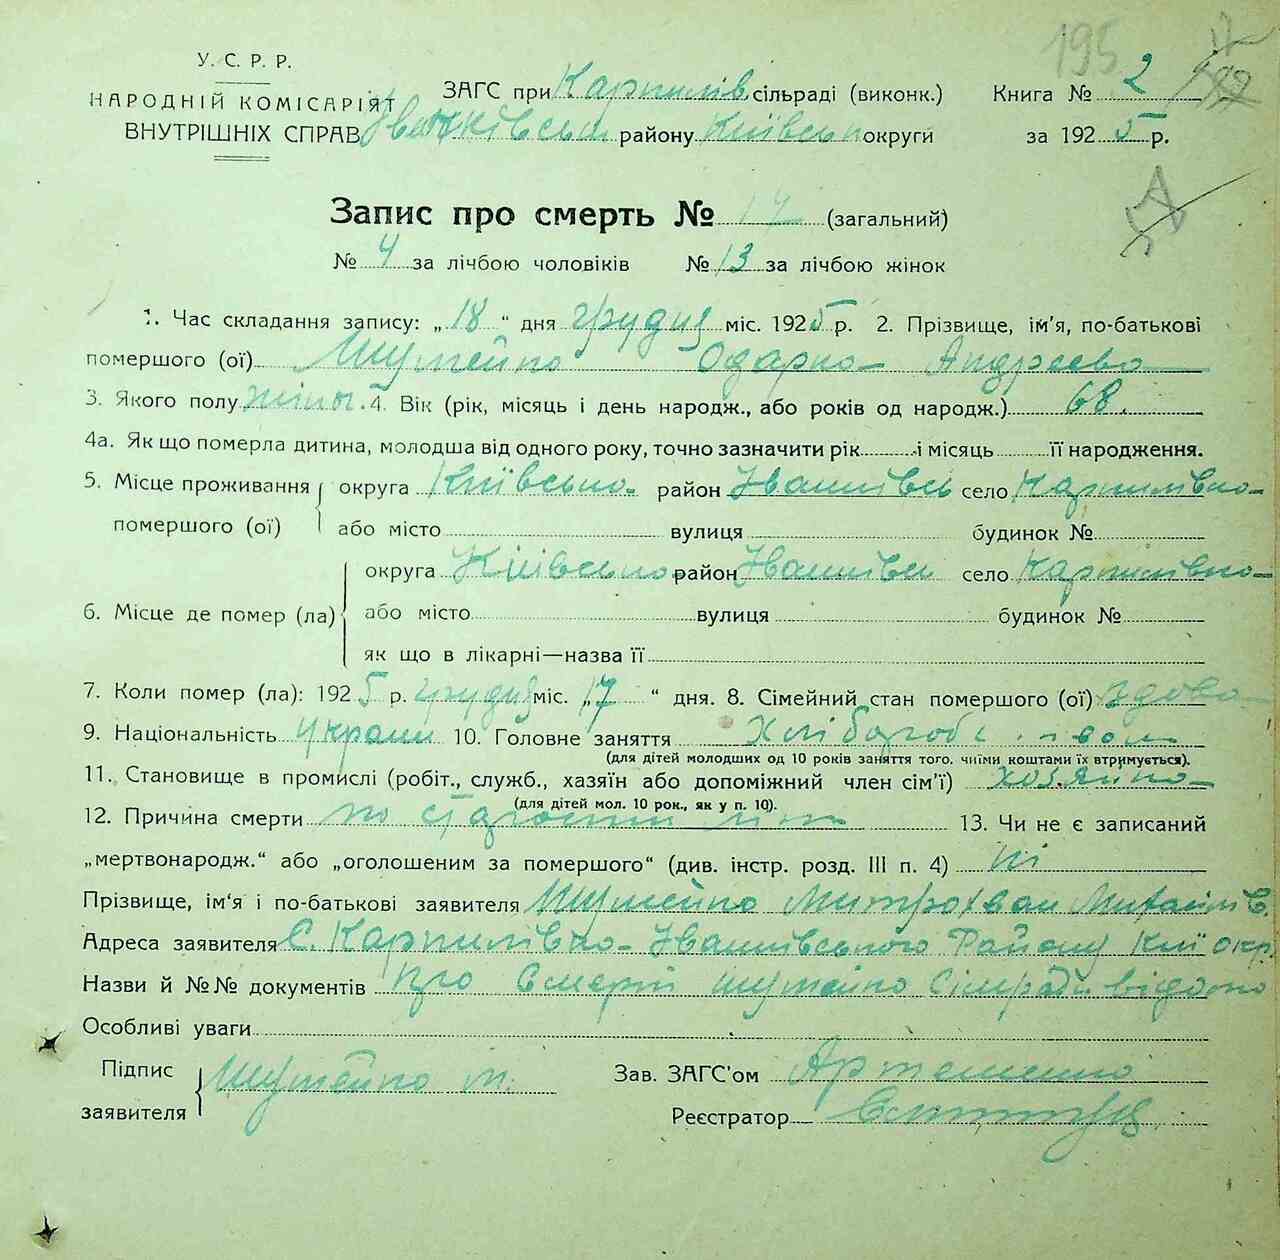 195
У. С. Р. Р.
НАРОДНІЙ КОМІСАРІЯТ
ВНУТРІШНІХ СПРАВ
ЗАГС при Карпилів. сільраді (виконк.) Книга № 2
Іванківськ району Київськ округи за 1925 р.
Запис про смерть № 17 (загальний)
№ 4 за лічбою чоловіків № 13 за лічбою жінок
1. Час складання запису: „18“ дня грудня міс. 1925 р. 2. Прізвище, ім'я, по-батькові
помершого (ої) Шутейко Одарка Андреєва
3. Якого полу жіноч. 4. Вік (рік, місяць і день народж., або років од народж.) 68.
4а. Як що померла дитина, молодша від одного року, точно зазначити рік і місяць її народження.
5. Місце проживання помершого (ої) округа Київська район Іванківськ село Карпилівка
або місто вулиця будинок №
6. Місце де помер (ла) округа Київська район Іванківськ село Карпилівка
або місто вулиця будинок №
як що в лікарні—назва її
7. Коли помер (ла): 1925 р. грудня міс. „17“ дня. 8. Сімейний стан помершого (ої) вдова
9. Національність україн 10. Головне заняття хлібороб
(для дітей молодших од 10 років заняття того, чиїми коштами їх втримується).
11. Становище в промислі (робіт., служб., хазяїн або допоміжний член сім'ї) хозяйка
(для дітей мол. 10 рок., як у п. 10).
12. Причина смерти по старости літ 13. Чи не є записаний
„мертвонародж.“ або „оголошеним за помершого“ (див. інстр. розд. III п. 4) ні
Прізвище, ім'я і по-батькові заявителя Шутейко Митрохван Михайлів.
Адреса заявителя С. Карпилівка Іванківського Району Киї окр.
Назви й №№ документів про смерть Шутейко Сільраді відомо
Особливі уваги
Підпис заявителя Шутейко М. Зав. ЗАГС'ом Артеменко
Реєстратор